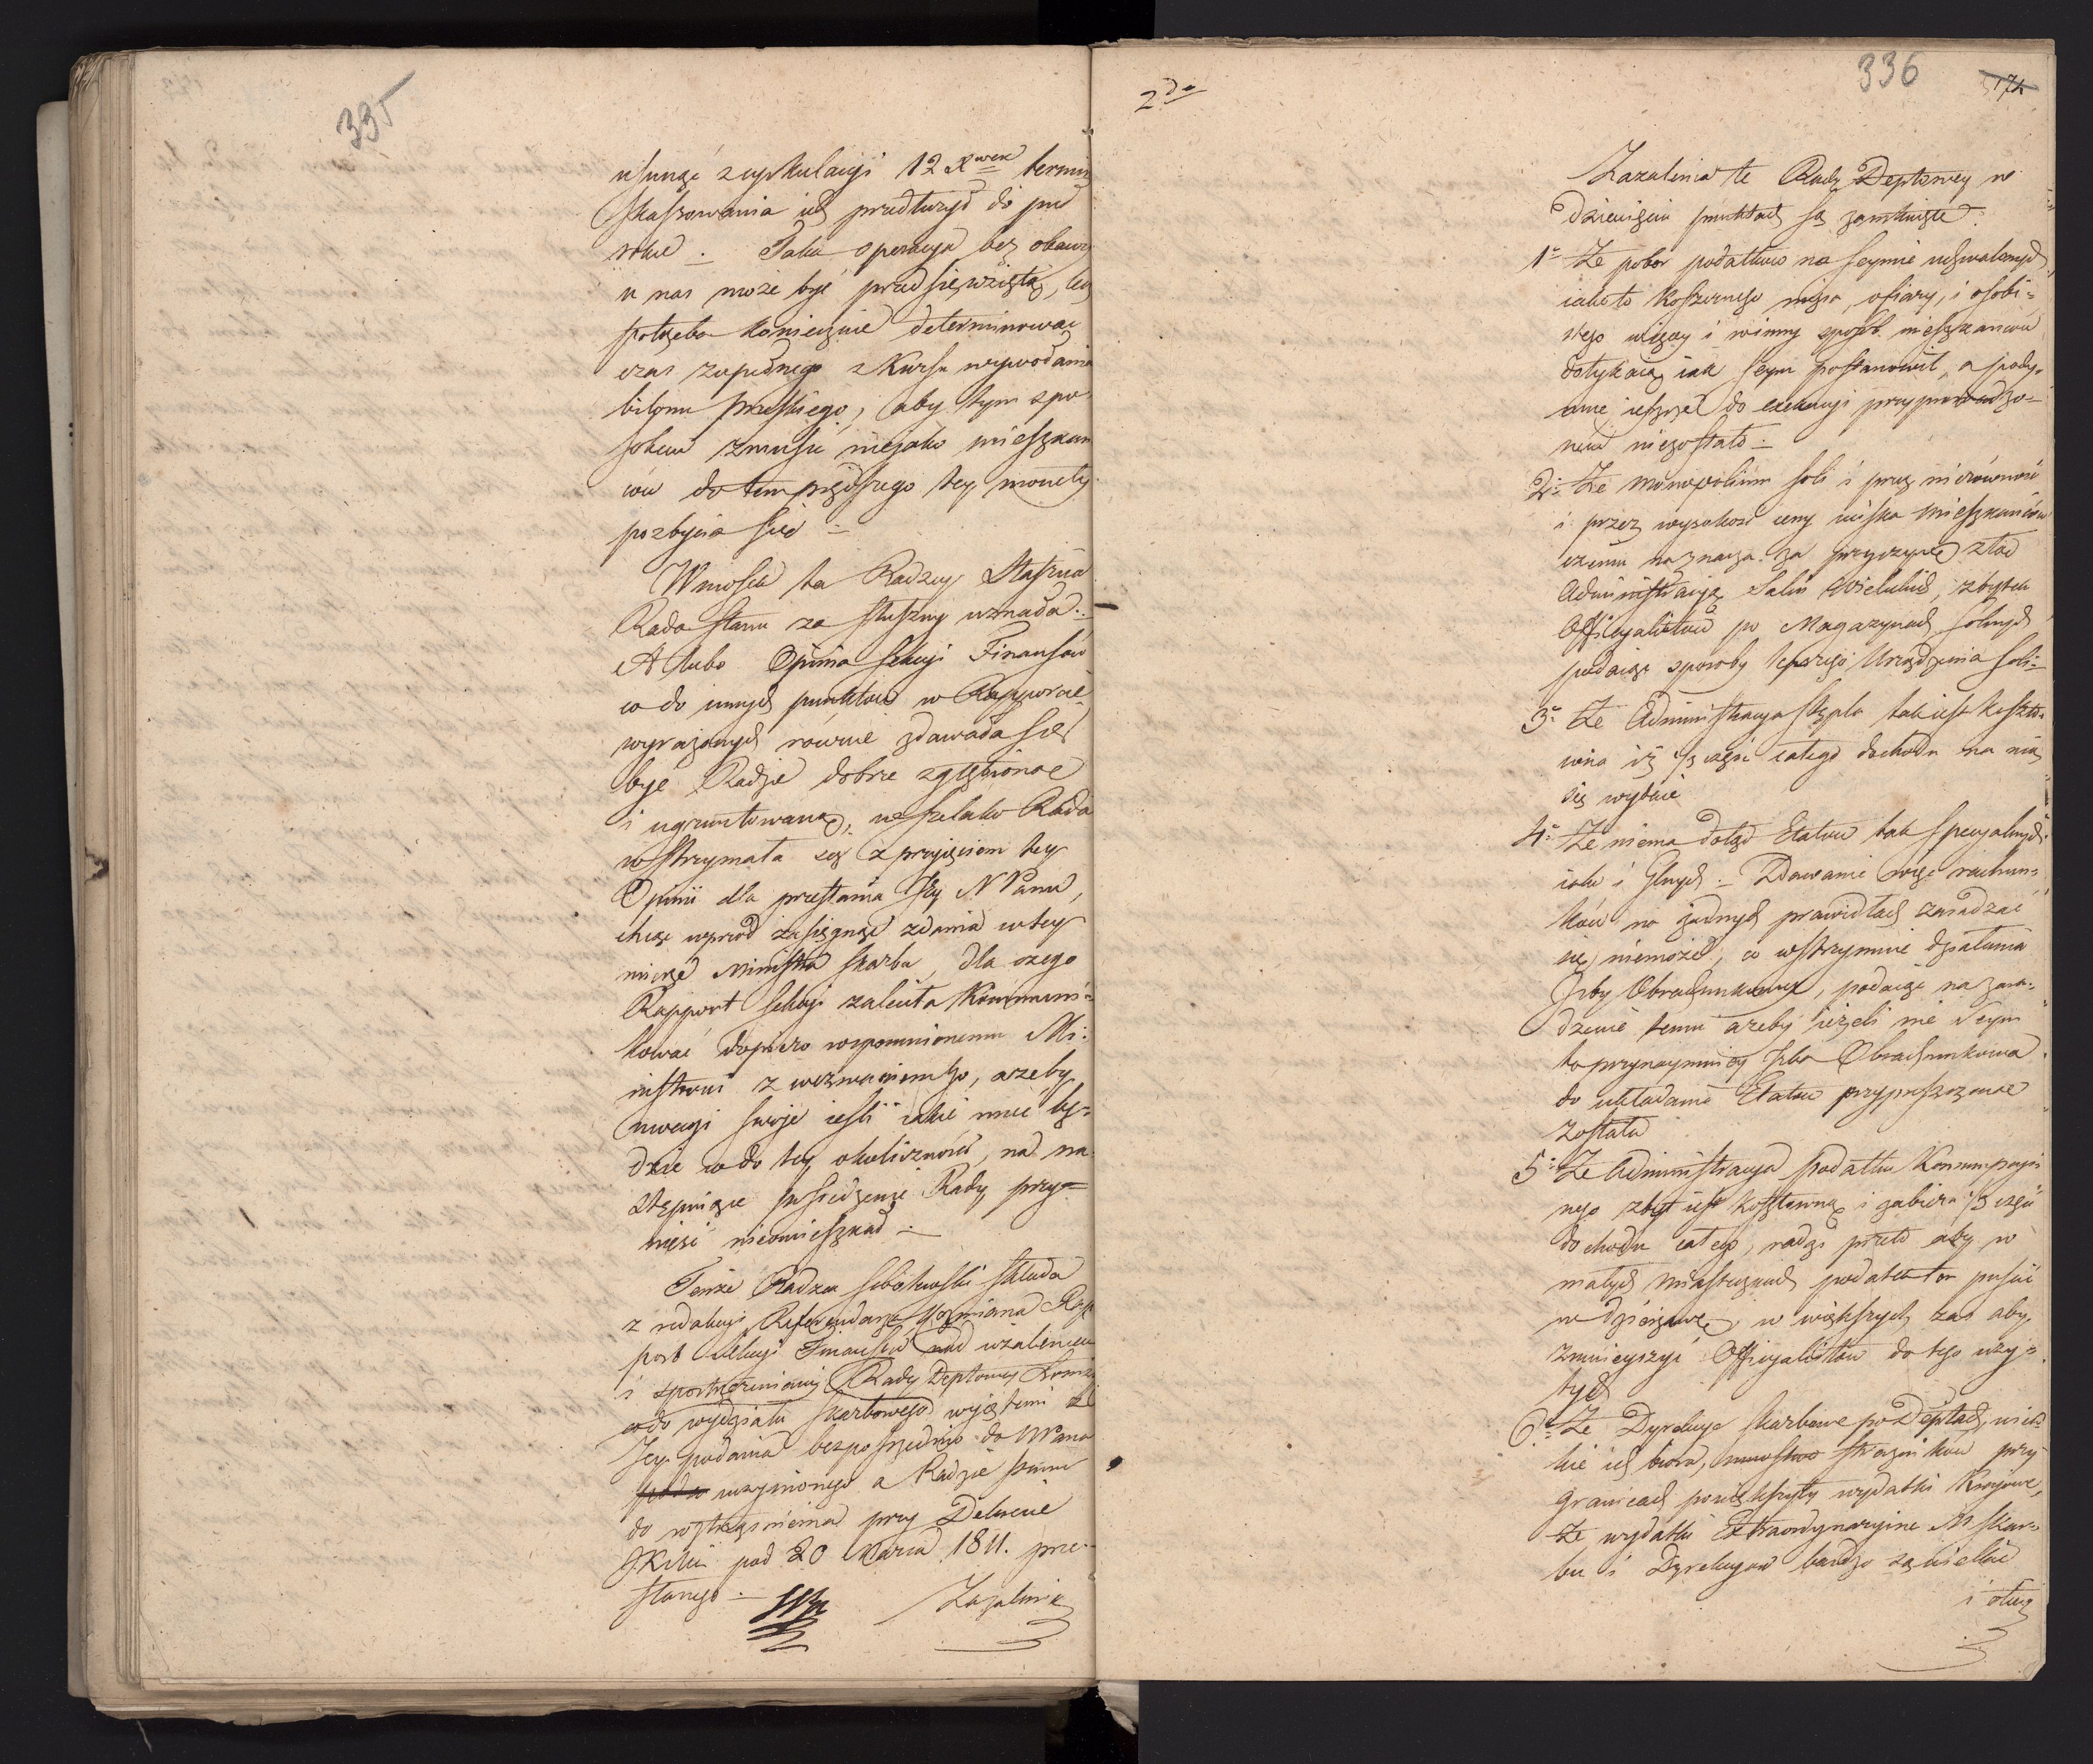 335
usunąć z cyrkulacyi 12 Xwen termin
skassowania ich przedłużyć do pół
roku. Taka operacya bez obawy
u nas może być przedsięwziętą, lecz
potrzeba koniecznie determinować
czas zupełnego z kursu wywołania
bilonu pruskiego, aby tym spo
sobem zmusić niejako mieszkań
ców do tem prędszego tey monety
pozbycia się
Wniosek ten Radzcy Staszica
Rada Stanu za słuszny uznała.
A lubo Opinia Sekcyi Finansów
co do innych punktów w Rapporcie
wyrażonych równie zdawała się
być Radzie dobrze zgłębioną
i ugruntowaną, wszelako Rada
wstrzymała się z przyjęciem tey
Opinii dla przesłania Jey N Panu,
chcąc wprzód zasięgnąć zdania w tey
mierze Ministra Skarbu, dla czego
Rapport Sekcyi zaleciła kommuni=
kować dopiero wspomnionemu Mi=
nistrowi z wezwaniem go, ażeby
uwagi swoje ieśli iakie mieć bę=
dzie co do tey okoliczności, na na
stępuiące posiedzenie Rady przy=
nieść nieomieszkał
Tenże Radzca składa
z redakcyi Referendarza Woźniana Rap
port Sekcyi Finansów nad użaleniem
i spostrzeżeniami Rady Deptowey Łomż
co do wydziału skarbowego wyiętemi ze
Jey podania bezpośrednio do NPana
uczynionego a Radzie Stanu
do roztrząśnienia przy Dekrecie
JKMci pod 20 Marca 1811. prze=
słanego
Zażalenia
336
2do
Zażalenia te Rady Deptowey w
dziewięciu punktach są zamknięte.
1o Że pobór podatków na Seymie uchwalonych
iakoto koszernego mięsa, ofiary, i osobi=
stego więcey i w inny sposób mieszkańców
dotykaią iak Seym postanowił, a pody=
mne ieszcze do exekucyi przyprowadzo=
nem niezostało
2o Że monopolium soli i przez nierówność
i przez wysokość ceny uciska mieszkańców
czemu naznacza za przyczynę złą
Administracyą Salin Wielickich, zbytek
Officyalistów po Magazynach solnych
podaiąc sposoby lepszego Urządzenia soli
3o Że Administracya stępla tak iest koszto=
wna iż 1/3 część całego dochodu na nią
się wyda​ie
4o Że niema dotąd Etatów tak specyalnych
iako i Głnych. Dawanie więc rachun=
ków na żadnych prawidłach zasadzać
się niemoże, co wstrzymuie działania
Izby Obrachunkowey, podaiąc na zara=
dzenie temu ażeby ieżeli nie Seym
to przynaymniey Izba Obrachunkowa
do układania Etatów przypuszczoną
została
5o Że Administracya podatku Konsumpcyi=
nego zbyt iest kosztowną i zabiera 1/3 część
dochodu całego, radzi przeto aby w
małych miasteczkach podatek ten puścić
w dzierżawę, w większych zaś aby
zmnieyszyć Officyalistów do tego uży=
tych
6o Że Dyrekcye skarbowe po Deptach, wiel
kie ich biora, mnóstwo strażników przy
granicach powiększyły wydatki kraiowe,
że wydatki Extraordynaryine M Skar=
bu i Dyrekcyów bardzo są wielkie
i